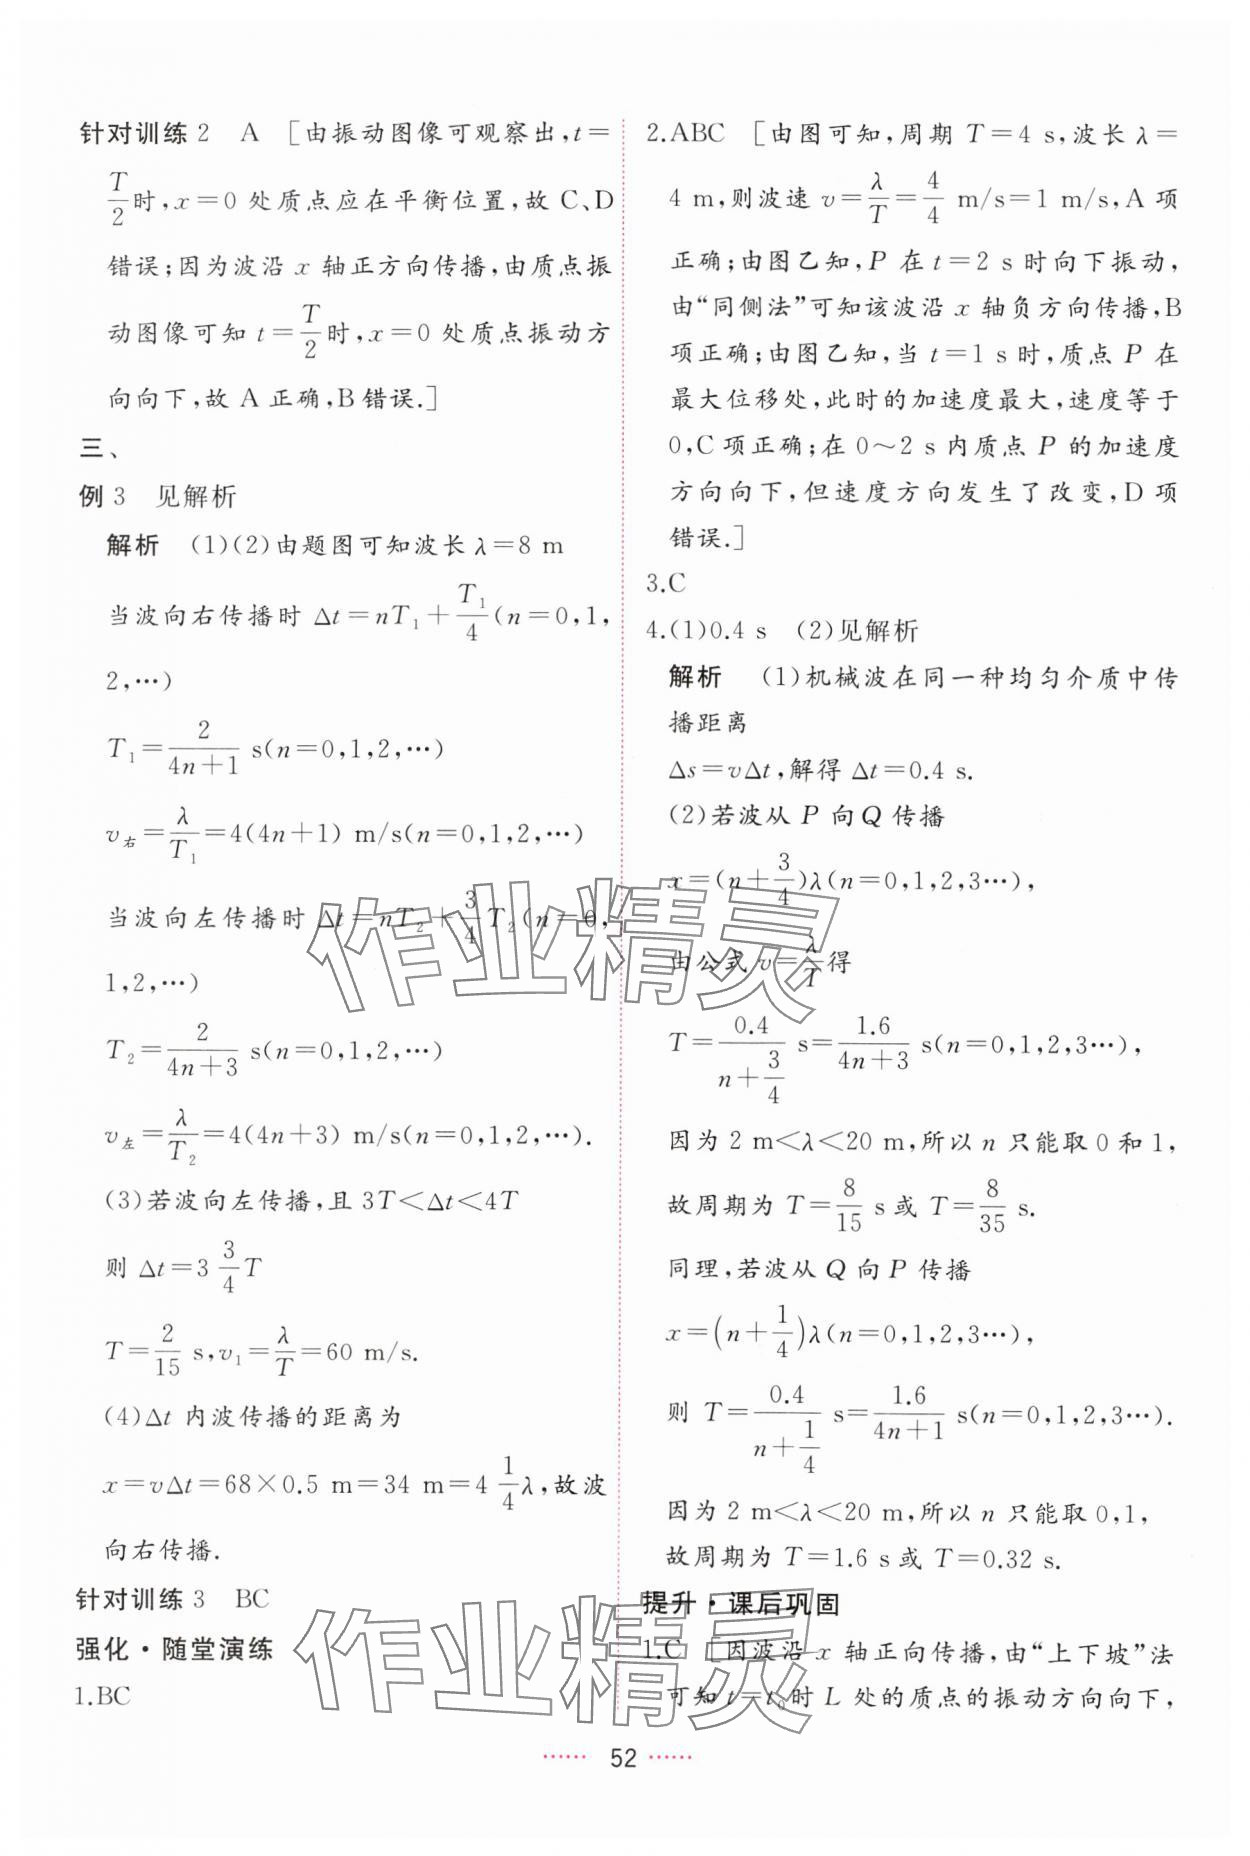 针对训练2 A [由振动图像可观察出,t=
T/2时,x=0 处质点应在平衡位置,故 C、D
错误;因为波沿 x 轴正方向传播,由质点振
动图像可知 t=T/2时,x=0 处质点振动方
向向下,故 A 正确,B错误.]
三、
例3 见解析
解析 (1)(2)由题图可知波长 λ=8 m
当波向右传播时 Δt=nT₁+T₁/4(n=0,1,
2,…)
T₁=2/(4n+1) s(n=0,1,2,…)
v右=λ/T₁=4(4n+1) m/s(n=0,1,2,…)
当波向左传播时 Δt=nT₂+3/4T₂(n=0,
1,2,…)
T₂=2/(4n+3) s(n=0,1,2,…)
v左=λ/T₂=4(4n+3) m/s(n=0,1,2,…).
(3)若波向左传播,且 3T<Δt<4T
则 Δt=3 3/4 T
T=2/15 s,v₁=λ/T=60 m/s.
(4)Δt 内波传播的距离为
x=vΔt=68×0.5 m=34 m=4 1/4 λ,故波
向右传播.
针对训练3 BC
强化·随堂演练
1.BC
2.ABC [由图可知,周期 T=4 s,波长 λ=
4 m,则波速 v=λ/T=4/4 m/s=1 m/s,A 项
正确;由图乙知,P 在 t=2 s 时向下振动,
由“同侧法”可知该波沿 x 轴负方向传播,B
项正确;由图乙知,当 t=1 s 时,质点 P 在
最大位移处,此时的加速度最大,速度等于
0,C 项正确;在 0～2 s 内质点 P 的加速度
方向向下,但速度方向发生了改变,D 项
错误.]
3.C
4.(1)0.4 s (2)见解析
解析 (1)机械波在同一种均匀介质中传
播距离
Δs=vΔt,解得 Δt=0.4 s.
(2)若波从 P 向 Q 传播
x=(n+3/4)λ(n=0,1,2,3…),
由公式 v=λ/T得
T=0.4/(n+3/4) s=1.6/(4n+3) s(n=0,1,2,3…),
因为 2 m<λ<20 m,所以 n 只能取 0 和 1,
故周期为 T=8/15 s或 T=8/35 s.
同理,若波从 Q 向 P 传播
x=(n+1/4)λ(n=0,1,2,3…),
则 T=0.4/(n+1/4) s=1.6/(4n+1) s(n=0,1,2,3…).
因为 2 m<λ<20 m,所以 n 只能取 0,1,
故周期为 T=1.6 s或 T=0.32 s.
提升·课后巩固
1.C [因波沿 x 轴正向传播,由“上下坡”法
可知 t=t₀时 L 处的质点的振动方向向下,
52
作业精灵
作业精灵